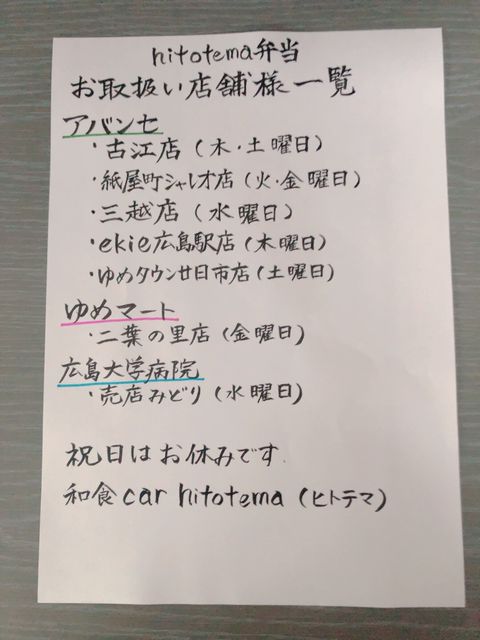 hitotema弁当
お取扱い店舗様一覧
アバンセ
・古江店(木・土曜日)
・紙屋町シャレオ店(火・金曜日)
・三越店(水曜日)
・ekie広島駅店(木曜日)
・ゆめタウン廿日市店(土曜日)
ゆめマート
・二葉の里店(金曜日)
広島大学病院
・売店みどり(水曜日)
祝日はお休みです.
和食car hitotema(ヒトテマ)